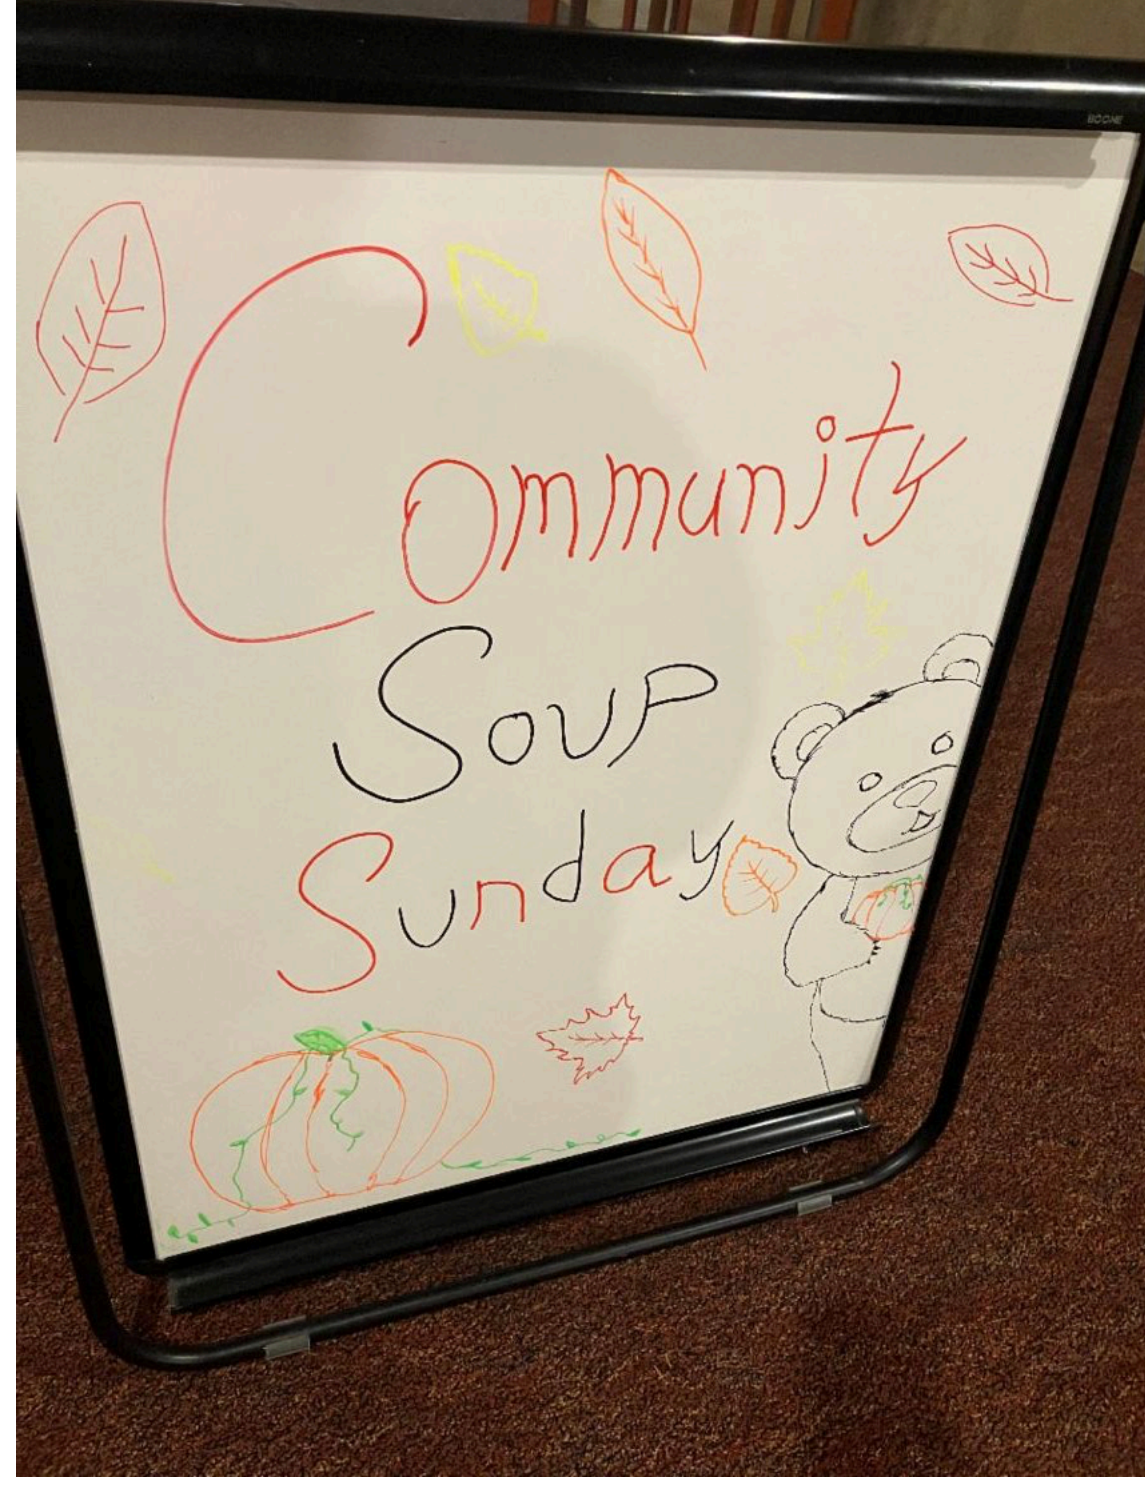 BOONE
Community
Soup
Sunday